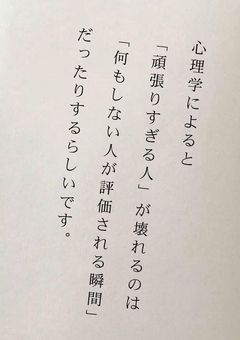 心理学によると
「頑張りすぎる人」が壊れるのは
「何もしない人が評価される瞬間」
だったりするらしいです。